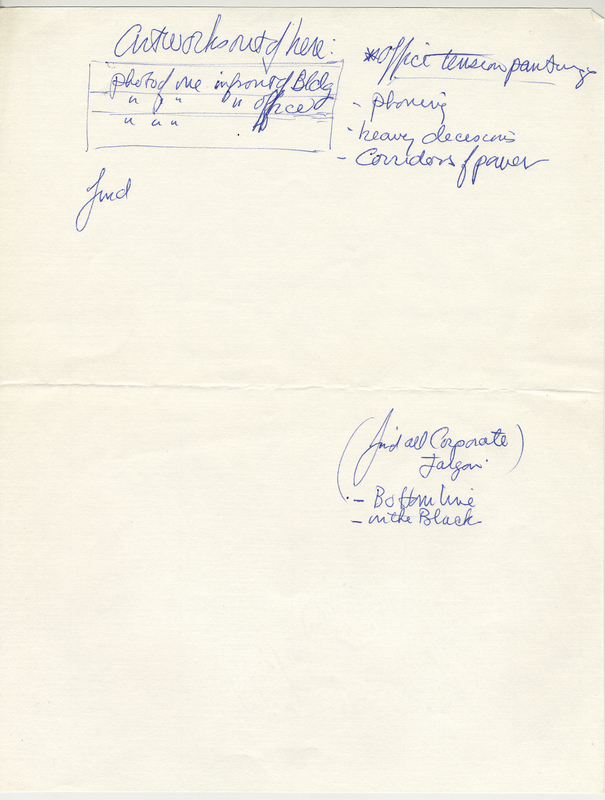 Artworks out of here:
photo of me in front of Bldg
" " " " office
" " "
find
*office tension paintings
- phoning
- heavy decisions
- Corridors of power
(find all Corporate
Jargon)
- Bottom line
- in the Black